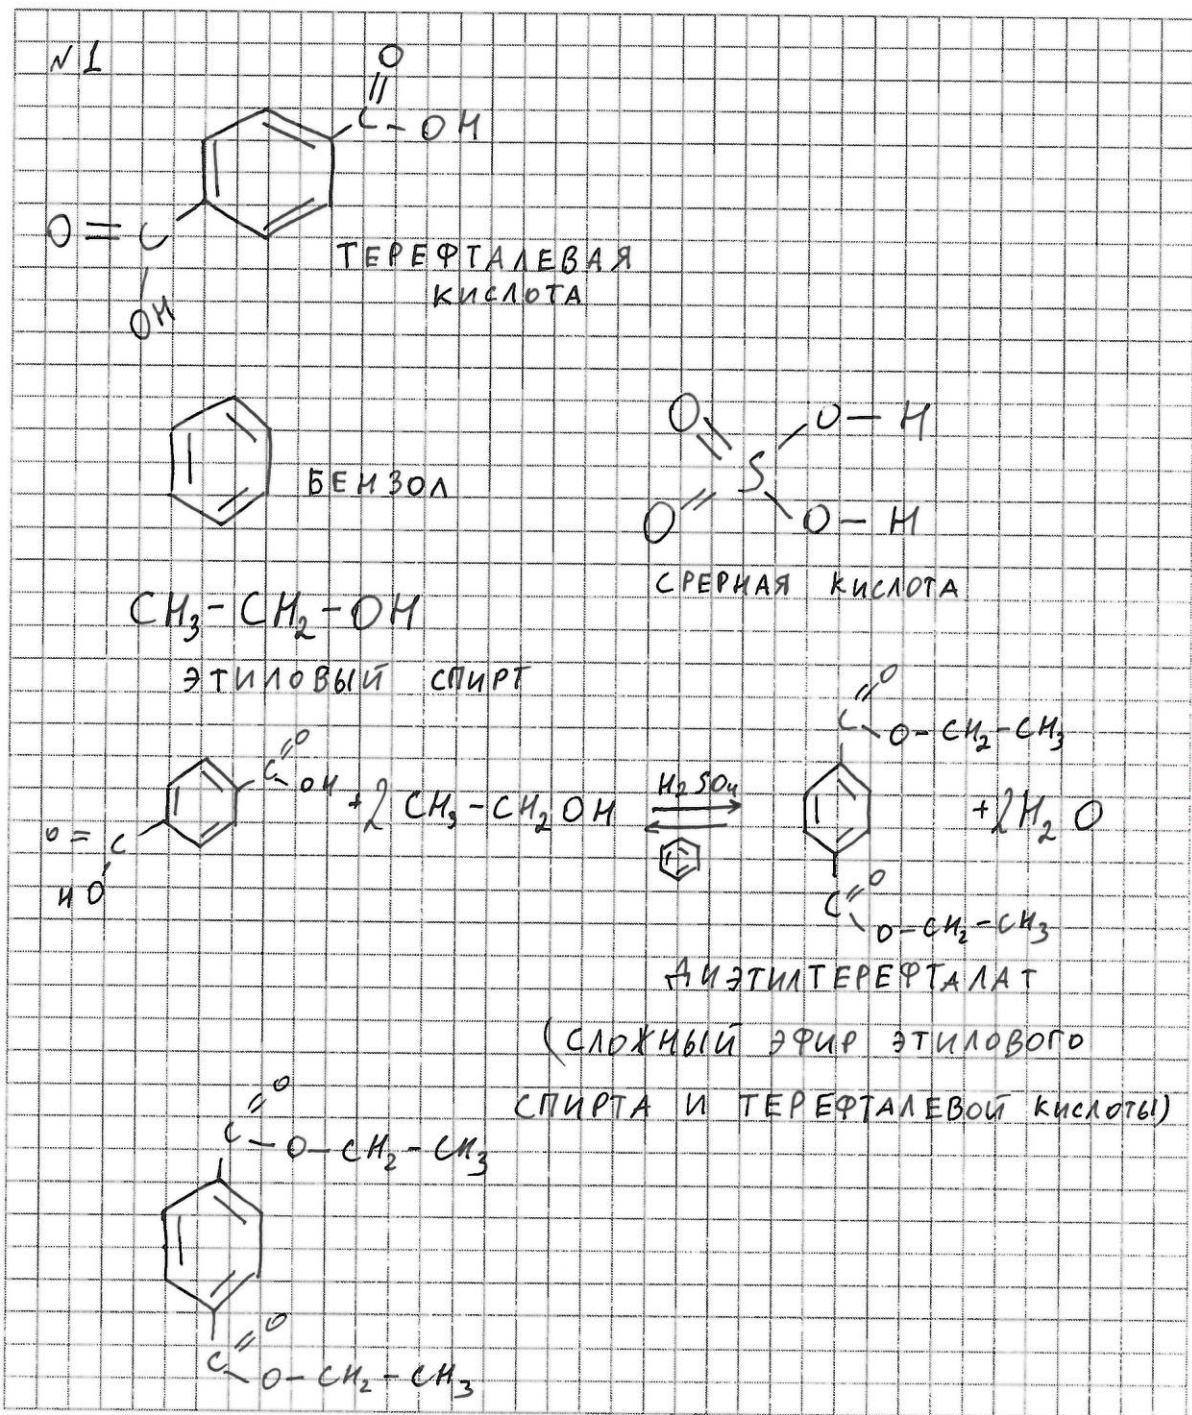 №1
O
C - OH
O = C
OH
ТЕРЕФТАЛЕВАЯ
КИСЛОТА
O O - H
S
O O - H
БЕНЗОЛ
СРЕРНАЯ КИСЛОТА
CH₃ - CH₂ - OH
ЭТИЛОВЫЙ СПИРТ
O
C O - CH₂ - CH₃
O
C OH + 2 CH₃ - CH₂OH H₂SO₄ + 2H₂O
O = C
HO
C O
O - CH₂ - CH₃
ДИЭТИЛТЕРЕФТАЛАТ
(СЛОЖНЫЙ ЭФИР ЭТИЛОВОГО
СПИРТА И ТЕРЕФТАЛЕВОЙ КИСЛОТЫ)
O
C - O - CH₂ - CH₃
O
C - O - CH₂ - CH₃